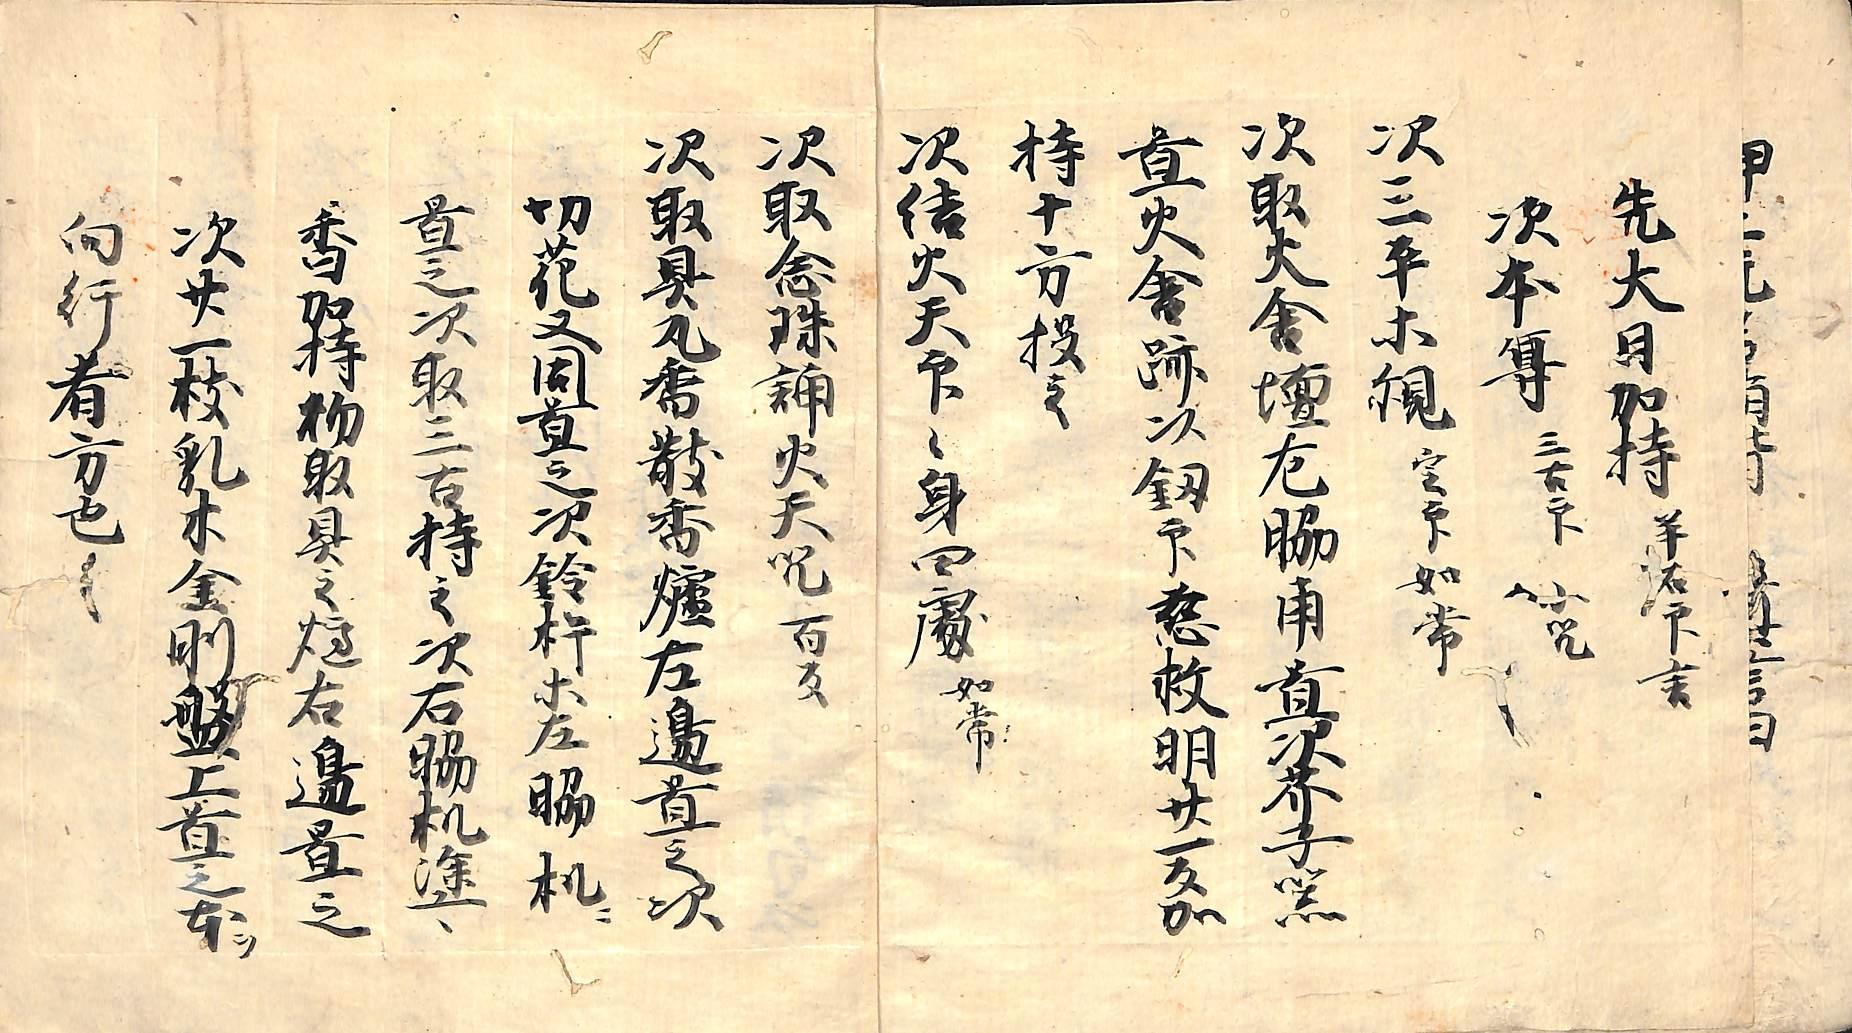 先大日加持 羊石印 言
次本尊 三古印 小咒
次三平ホ観 定印 如常
次取火舎壇左脇角置次芥子器
置火舎跡以釼印慈救明廿一反加
持十方投之
次結火天印〻身四處 如常
次取念珠誦火天咒 百反
次取具丸香散香爐左邊置之次
切花又同置之次鈴杵ホ左脇机ニ
置之次取三古持之次右脇机塗〻
香加持物取具之爐右邊置之
次廿一枝乳木金剛盤上置之本ヲ
向行者方也